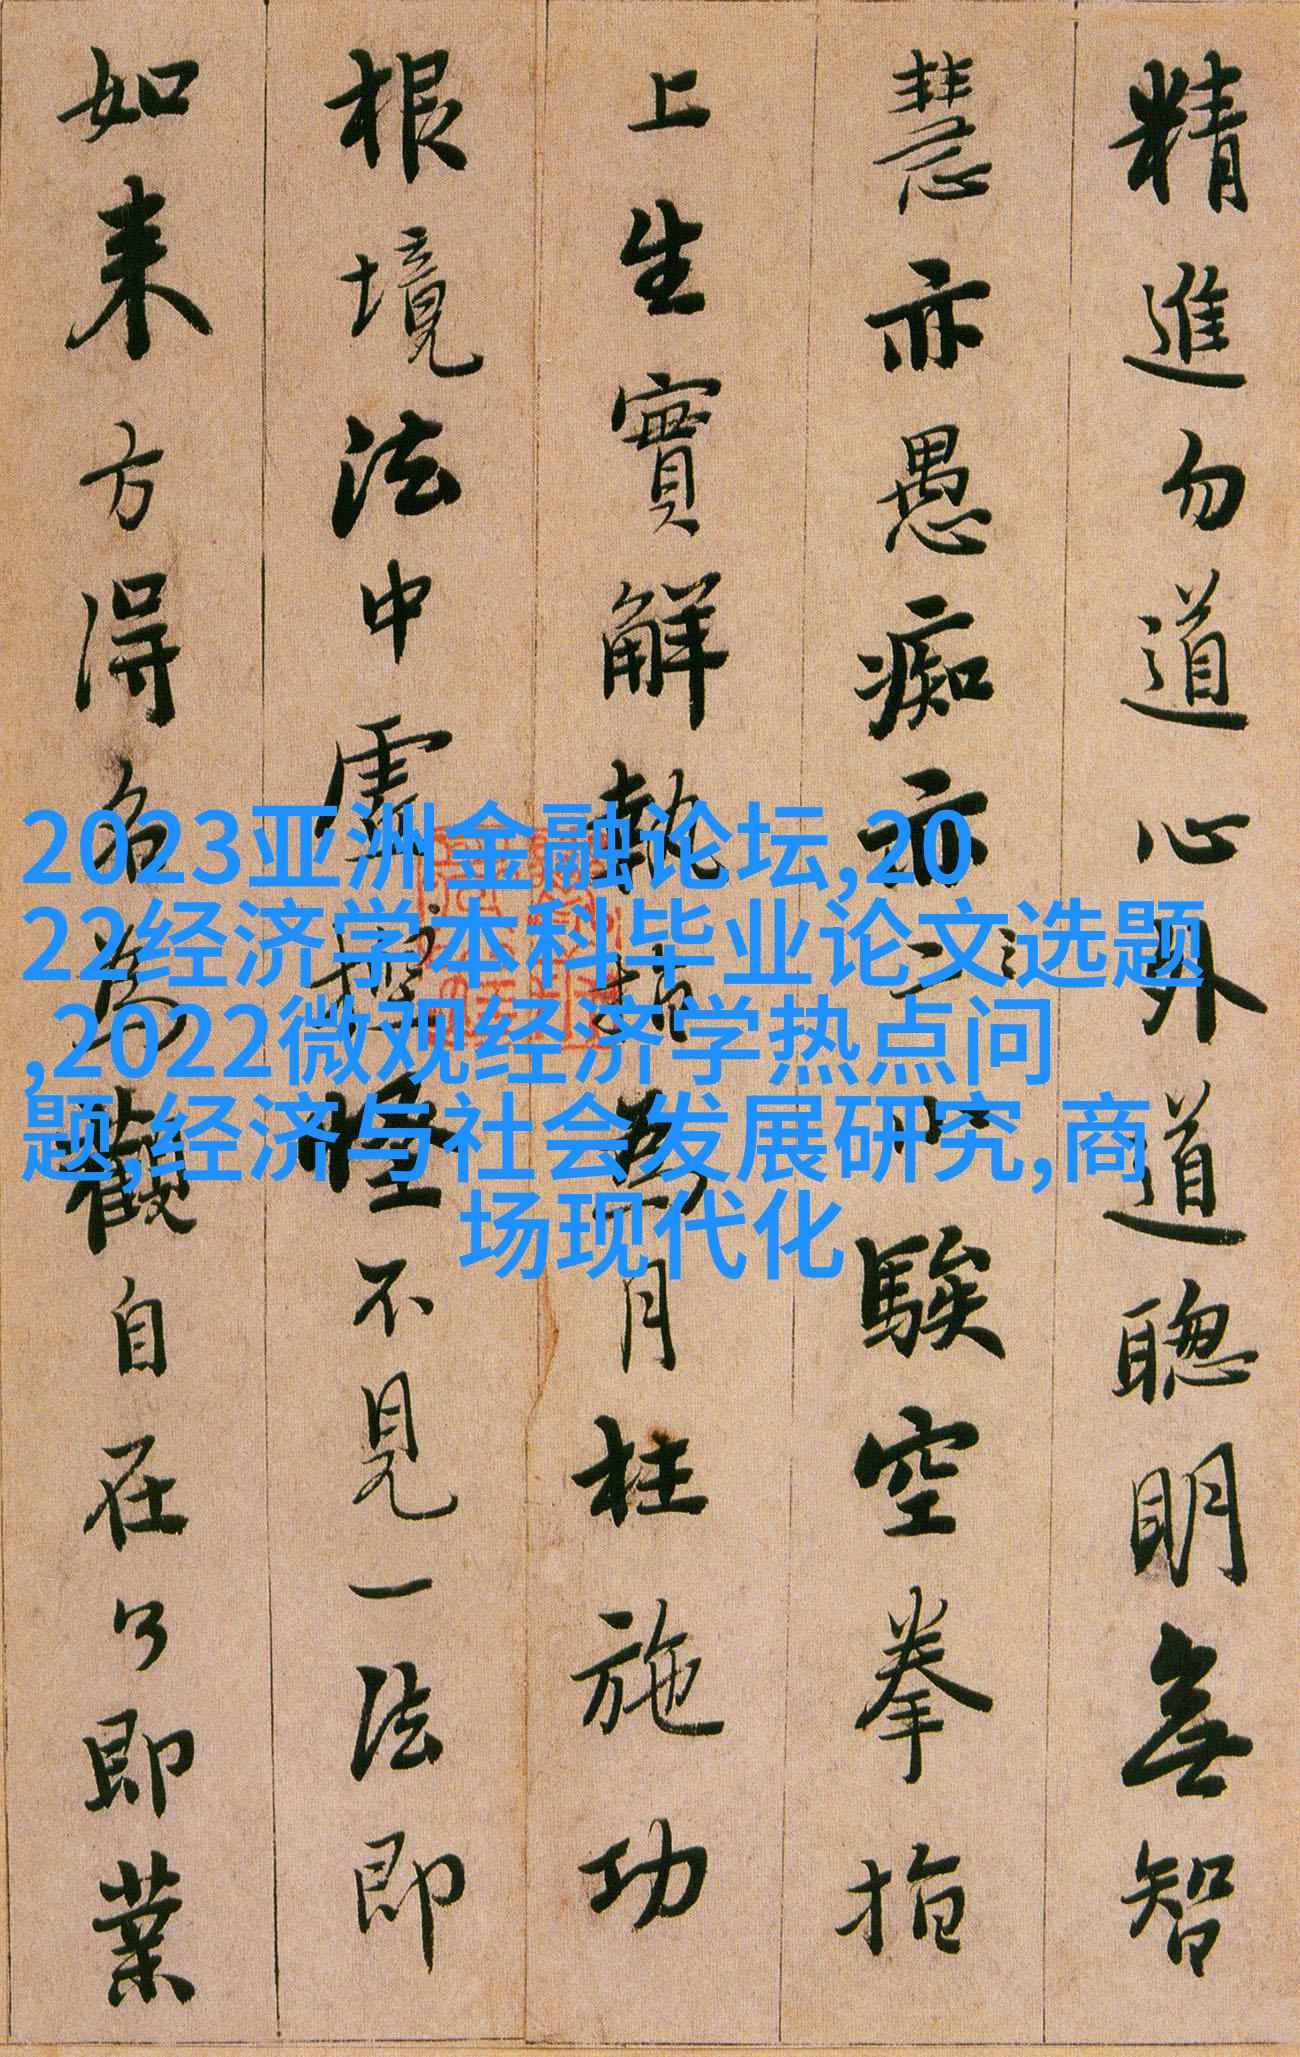 精進勿道心外道聰明無智
慧亦愚痴亦小騃空拳指
上生實解執指為月枉施功
根境法中虛捏怪不見一法即
如来方得名為觀自在了即業
2023亚洲金融论坛,20
22经济学本科毕业论文选题
,2022微观经济学热点问
题,经济与社会发展研究,商
场现代化